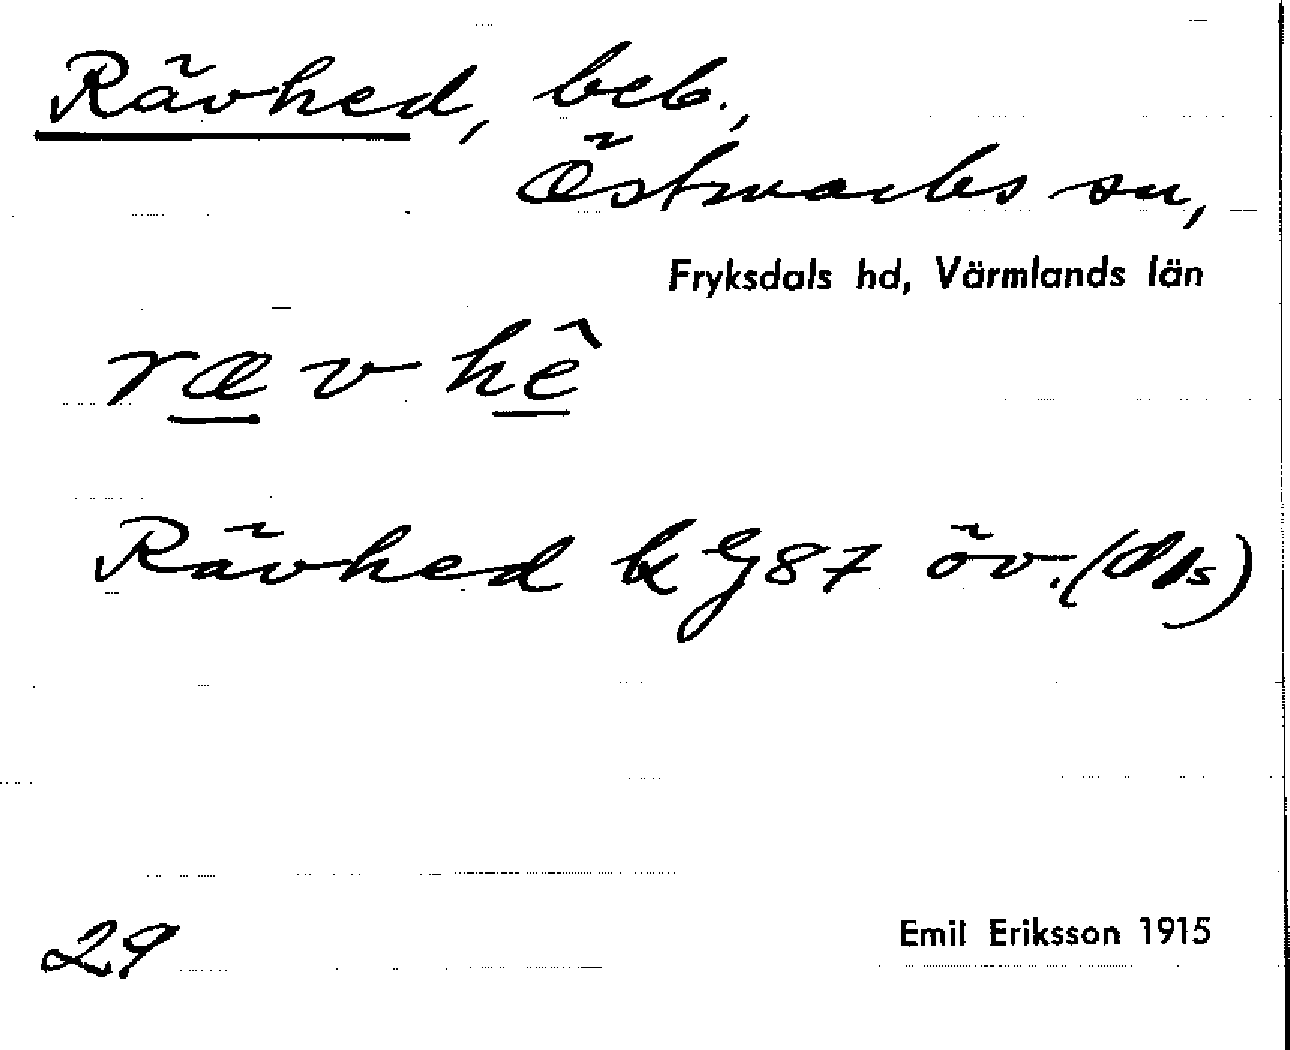 Rävhed, beb.,
Östmarks sn,
Fryksdals hd, Värmlands län
rævhê
Rävhed bg 87 öv.
29
Emil Eriksson 1915